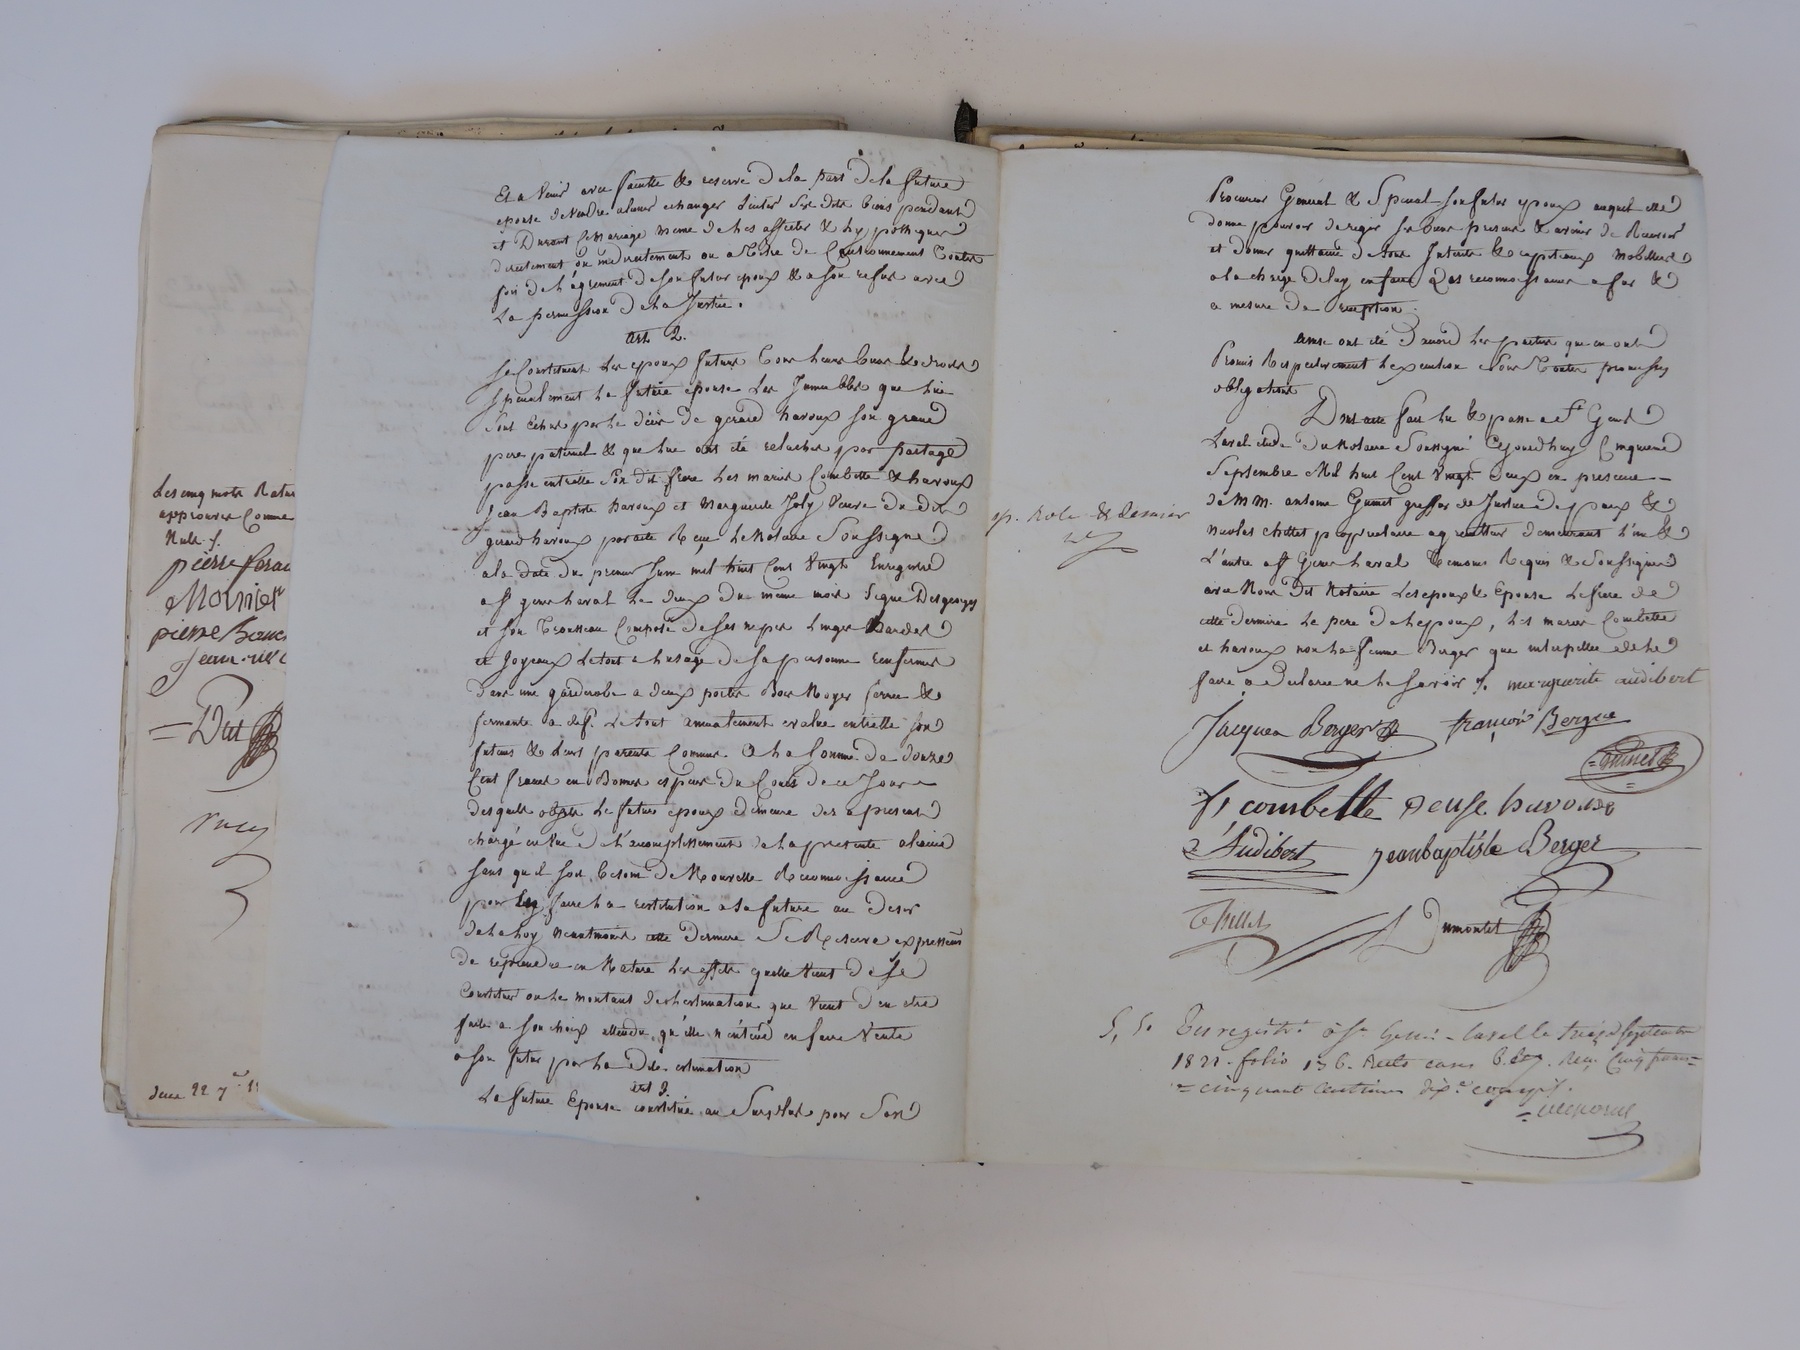 Les cinq mots
approuvés comme
Nuls ⸗.
pierre
Mounier
pierre
Jean
= Dut
dece 22 7
Et a venir avec faculté & reserve de la part de la future
epouse de vendre aliener echanger ses dits biens pendant
et Durant le mariage meme de les affecter & hypothequer
directement ou indirectement ou a titre de Cautionnement Toutes
fois de l'agrement de son futur epoux & a son refus avec
La permission de la Justice.
Art 2.
Se Constituent les epoux futurs Tous leurs biens & droits
specialement la future epouse Les Immeubles que lui
sont echus par le décès de gerard havoux son grand
pere paternel & que lui ont été relachés par partage
passé entr'elle son dit frere les mariés Combette & havoux
Jean Baptiste havoux et Marguerite Joly Veuve du dit
gerard havoux par acte Reçu Le Notaire Soussigné
a la date du premier Juin mil huit Cent Vingt Enregistré
a st genis laval Le deux du meme mois Signé Desgeorges
et son Trousseau Composé de ses nipes Linges Hardes
et Joyeaux Le tout a l'usage de sa personne renfermés
dans une garderobe a deux portes Bois Noyer ferrée &
fermante a clef. Le tout amiablement evalué entr'elle son
futur & leurs parents Communs a la somme de douze
Cent francs en Bonnes especes du Cours de ce Jour
desquels objets Le futur epoux demeure des a present
chargé en vue de l'accomplissement de la presente alliance
sans qu'il soit besoin de Nouvelle Reconnoissance
pour en faire la restitution a la future au desir
de la loy Neantmoins cette Derniere Se Reserve expressement
de reprendre en Nature Les effets qu'elle vient de se
Constituer ou le montant de l'estimation que vient d'en etre
faite a son choix attendu qu'elle n'entend en faire Vente
a son futur par la dite estimation
art 3.
La future Epouse constitue au Surplus pour Son
Procureur Général & Spécial son futur epoux auquel elle
donne pouvoir de regir ses biens presents & avenir de Recevoir
et donner quittance de tous Interets & capitaux mobiliers
a la charge de luy en faire reconnoissance a fur &
a mesure de reception.
ainsi ont été d'accord Les parties que en ont
Promis Respectivement l'execution sous Toutes promesses
obligations
Dont acte fait lu & passé a St Genis
Laval etude du Notaire Soussigné Cejourdhuy Cinquieme
Septembre Mil huit Cent Vingt Deux en presence
de MM. antoine Guinet greffier de Justice de paix &
Nicolas thillet proprietaire agriculteur demeurant l'un &
L'autre a st Genis Laval Temoins Requis & Soussignés
avec Nous Dit Notaire Les epoux & Epouse Le frere de
cette derniere Le pere de l'epoux, Les mariés Combette
et havoux non la femme Berger que interpellée de le
faire a declaré ne le savoir ⸗. marguerite audibert
ap. Role & dernier
Jacques Berger
françois Berger
Guinet
f combette
denise havoux
Audibert
jeanbaptiste Berger
Thillet
Dumontet
5, 50
Enregistré à St Genis-Laval le treize septembre
1822. folio 136. Recto cases 6. & 7. Reçu Cinq francs
= cinquante centimes dix.e compris.